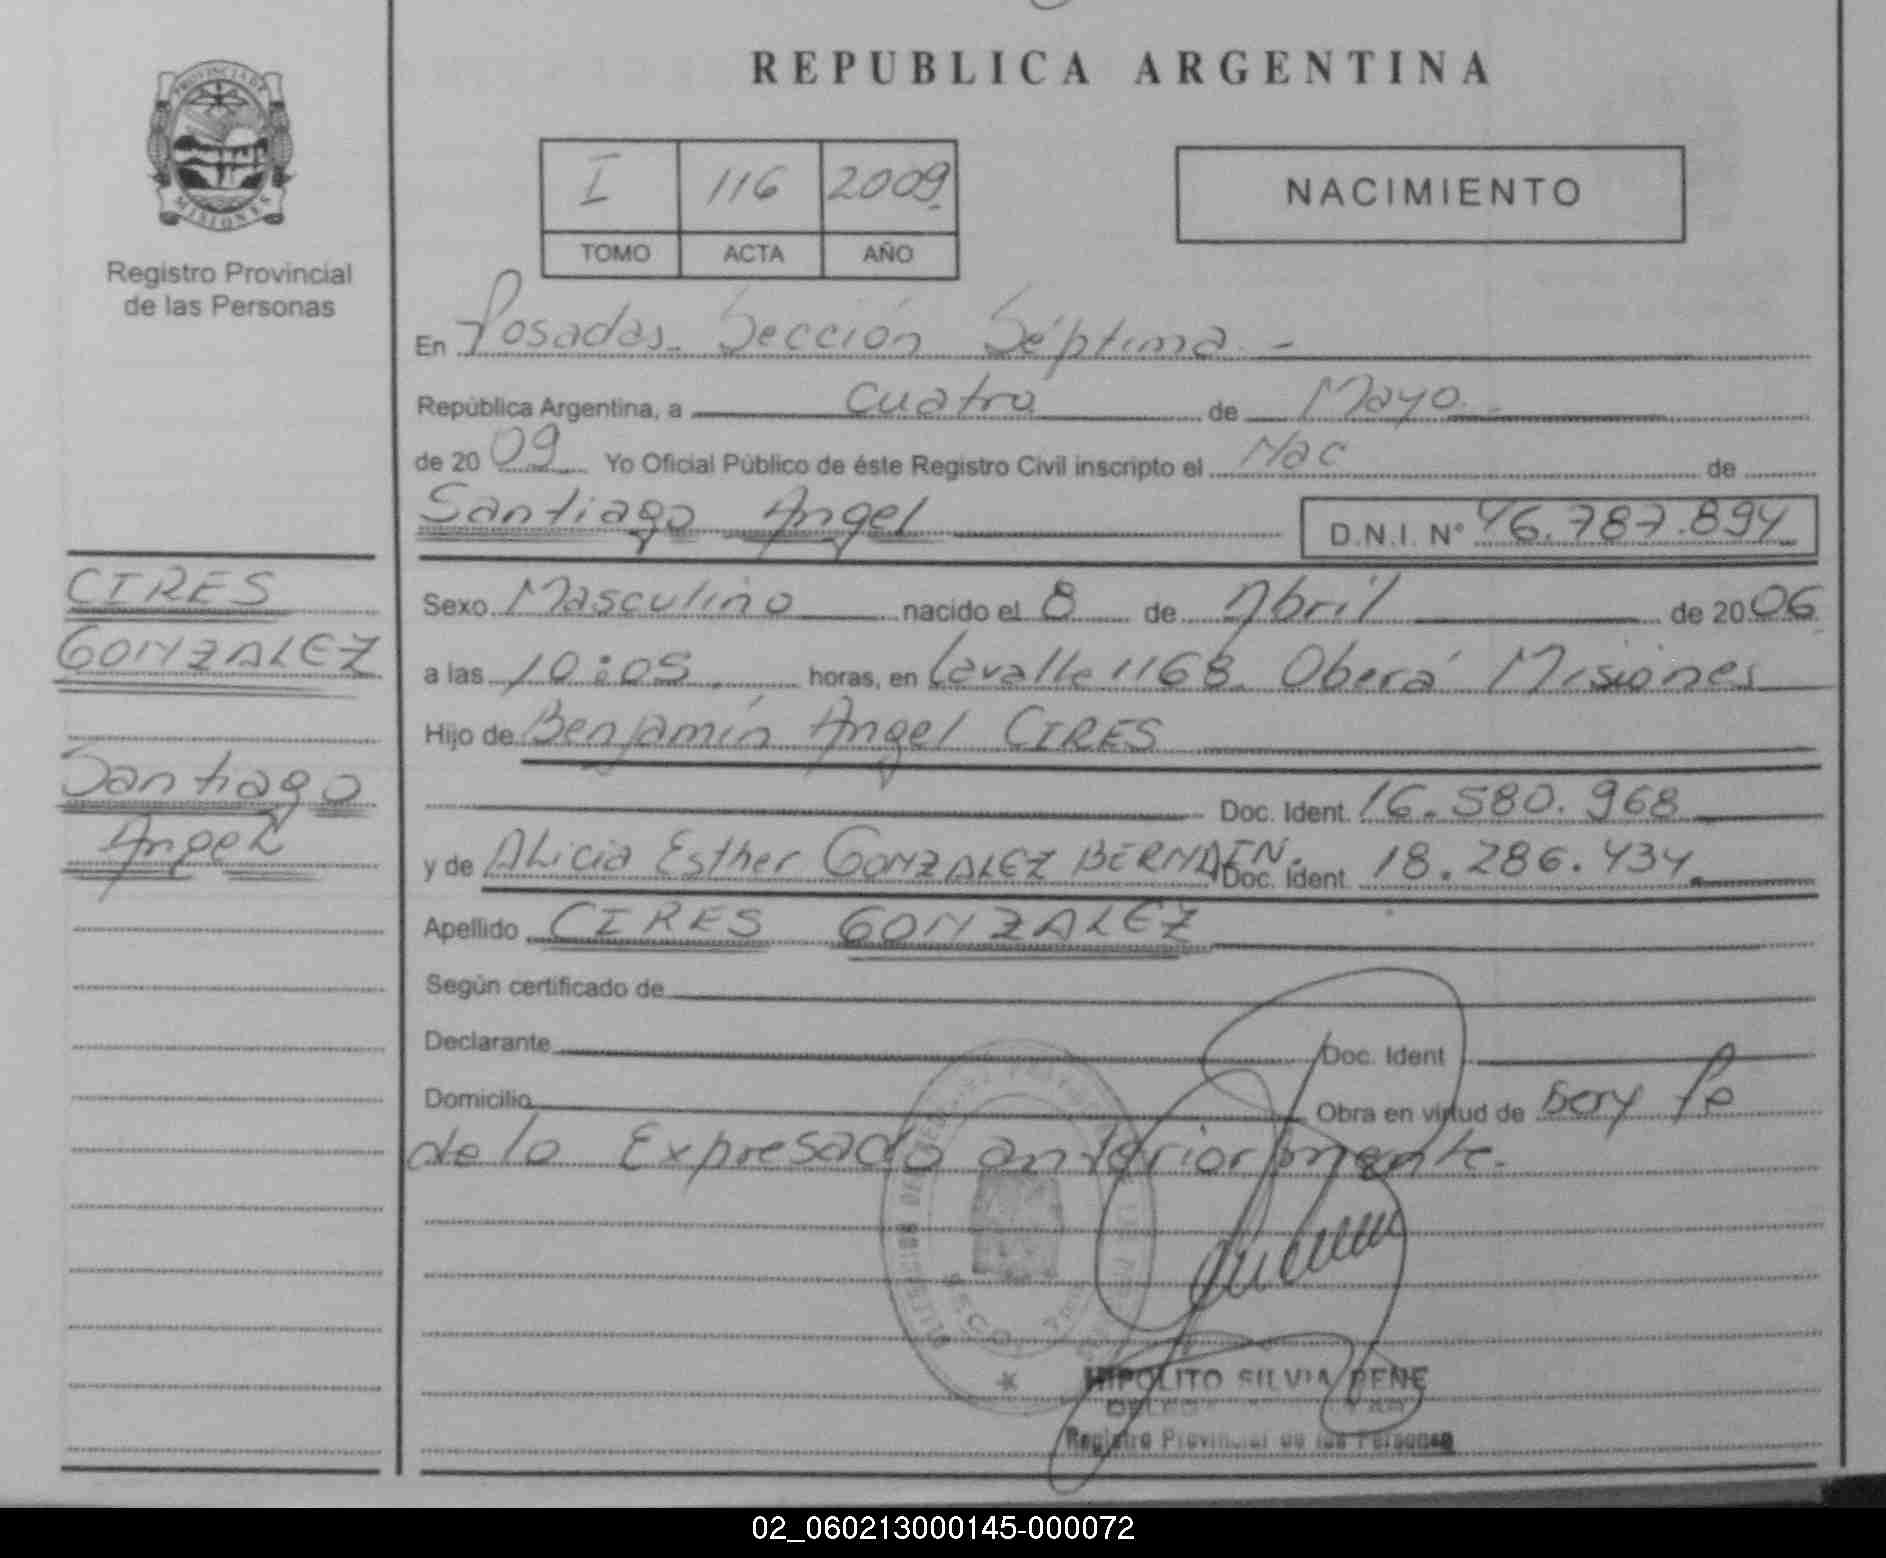 PROVINCIA DE
MISIONES
Registro Provincial
de las Personas
REPUBLICA ARGENTINA
I 116 2009
TOMO ACTA AÑO
NACIMIENTO
En Posadas. Sección Séptima. -
República Argentina, a cuatro de Mayo. -
de 2009 Yo Oficial Público de éste Registro Civil inscripto el Nac de
Santiago Angel D.N.I. N° 46.787.894
CIRES
GONZALEZ
Santiago
Angel
Sexo Masculino nacido el 8 de Abril de 2006
a las 10:05 horas, en Lavalle 1168 Oberá Misiones
Hijo de Benjamín Angel CIRES
Doc. Ident. 16.580.968
y de Alicia Esther GONZALEZ Doc. Ident. 18.286.434
Apellido CIRES GONZALEZ
Según certificado de
Declarante Doc. Ident
Domicilio Obra en virtud de Doy fe
de lo Expresado anteriormente.
HIPOLITO SILVIA RENE
Registro Provincial de las Personas
02_060213000145-000072